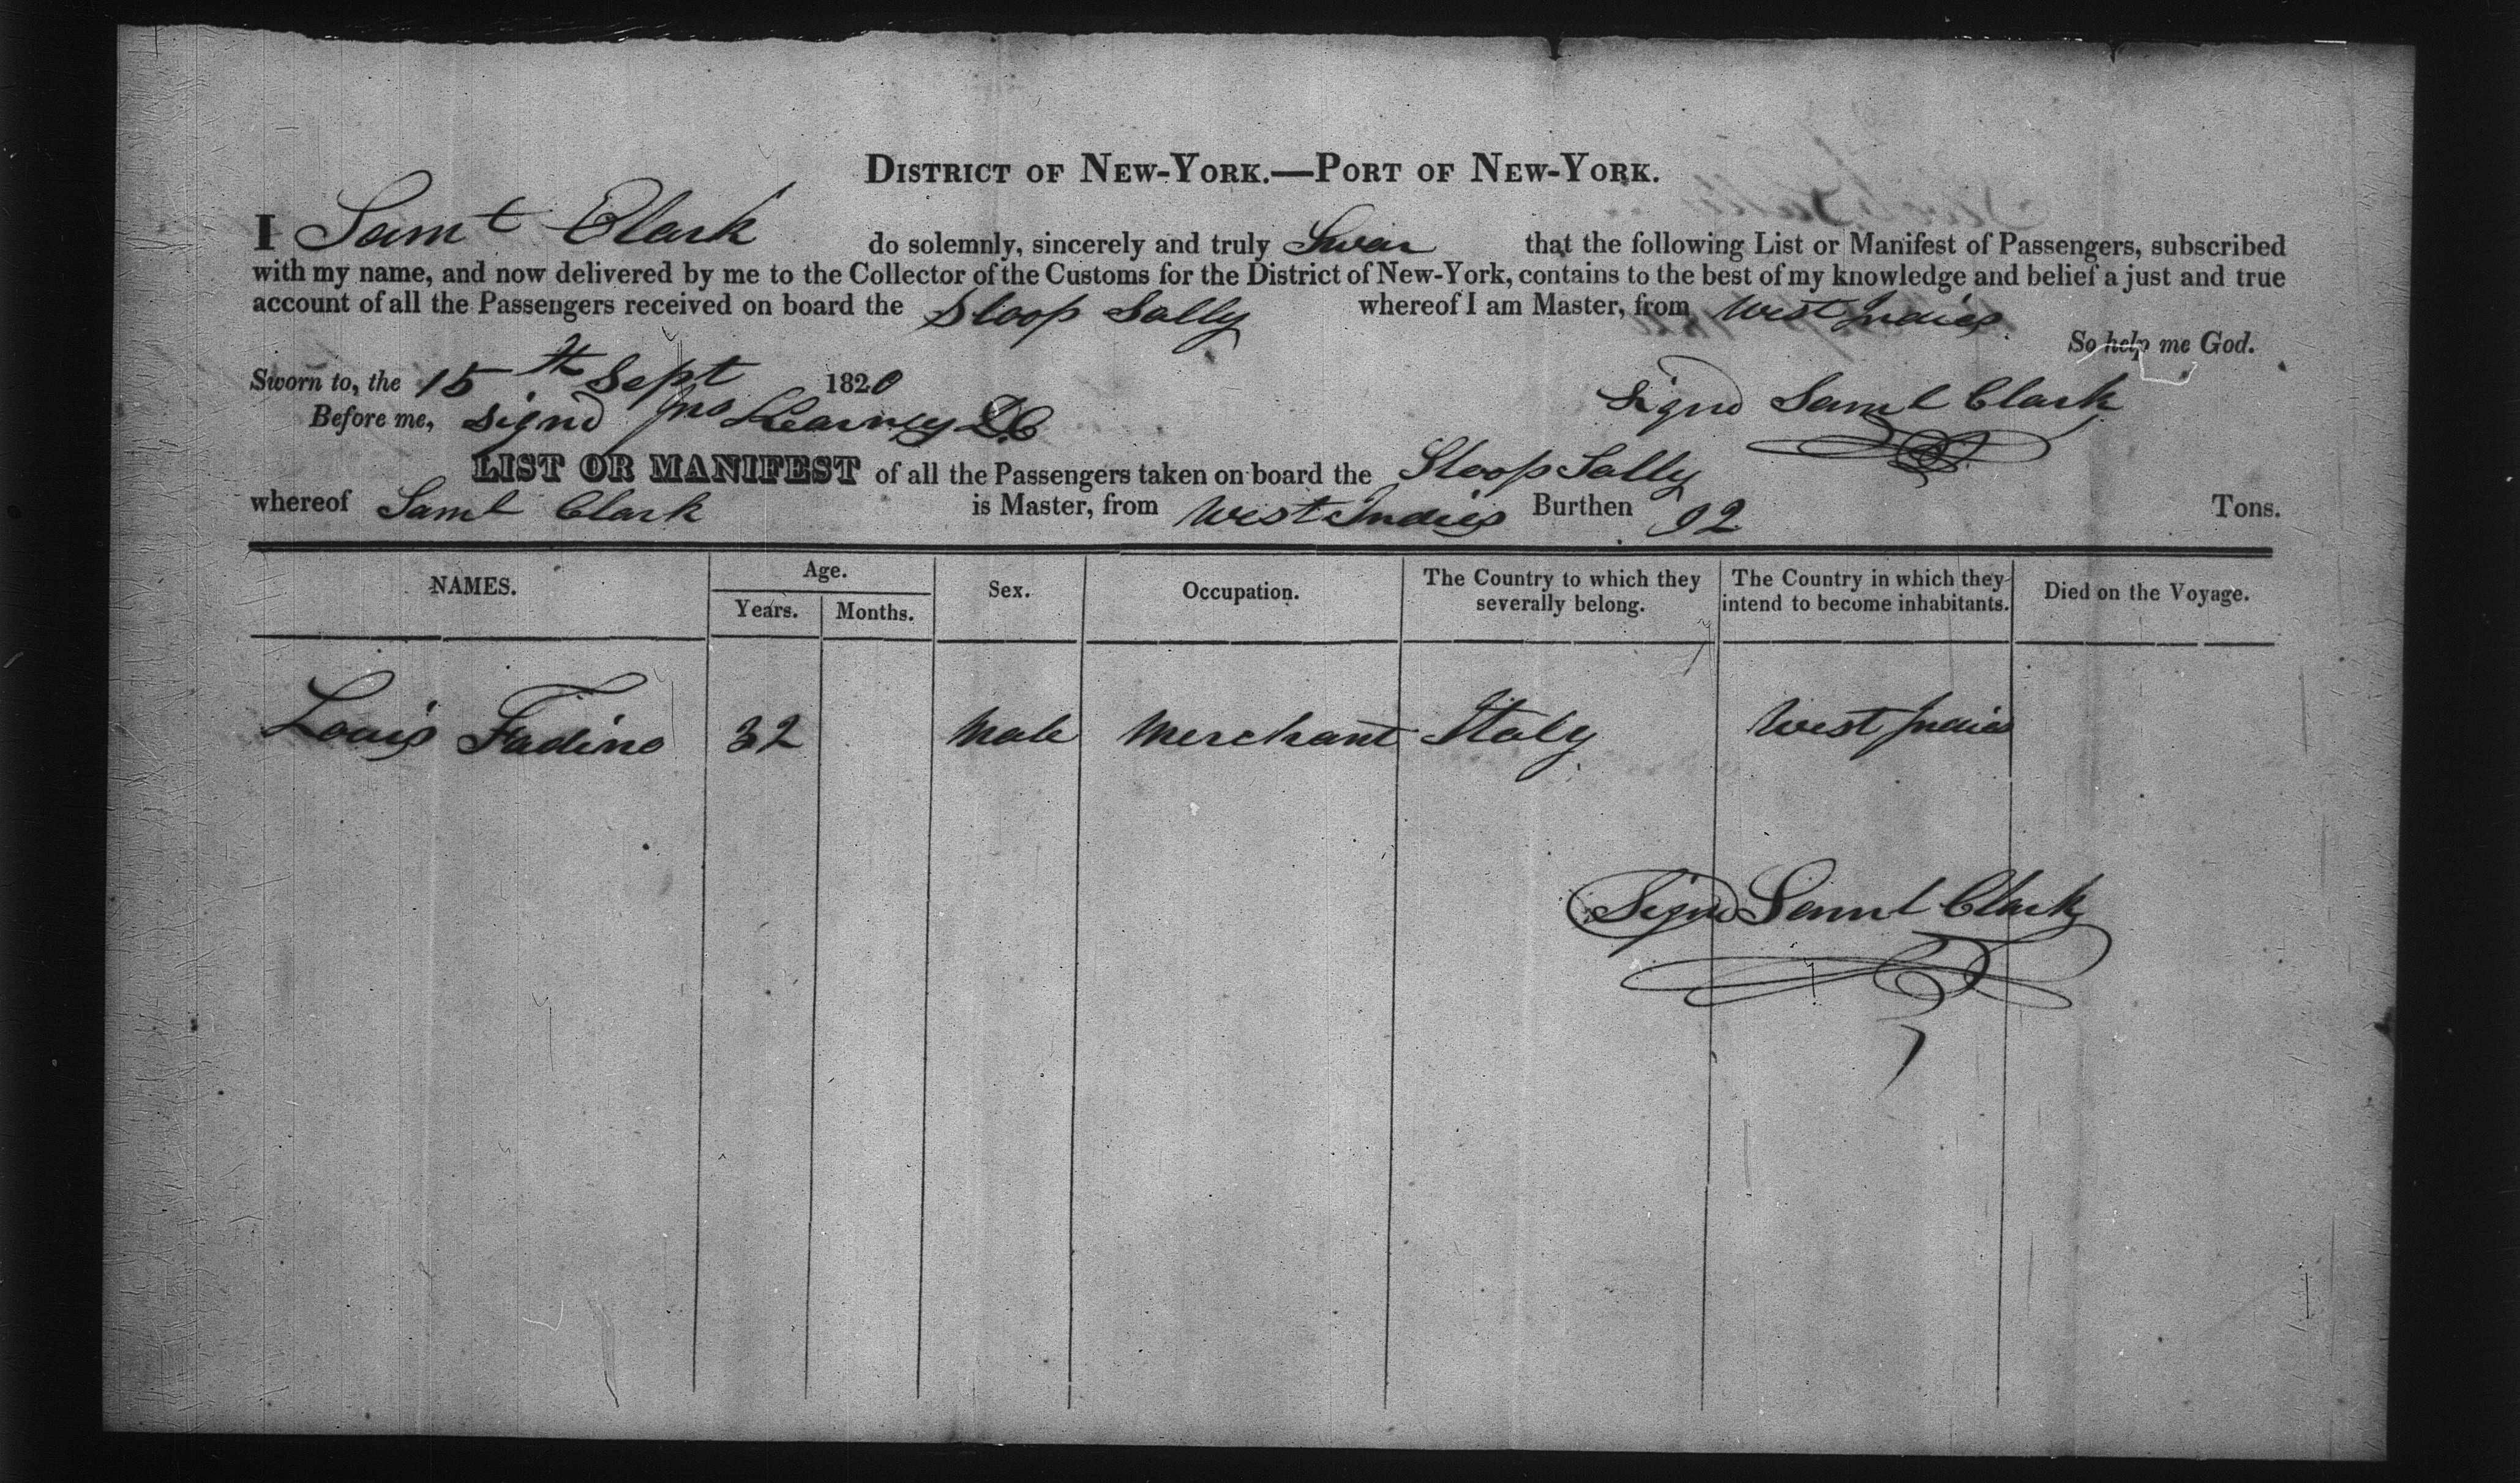 DISTRICT OF NEW-YORK.—PORT OF NEW-YORK.
I Saml Clark do solemnly, sincerely and truly Swear that the following List or Manifest of Passengers, subscribed
with my name, and now delivered by me to the Collector of the Customs for the District of New-York, contains to the best of my knowledge and belief a just and true
account of all the Passengers received on board the Sloop Sally whereof I am Master, from West Indies
So help me God.
Sworn to, the 15th Sept 1820
Signd Saml Clark
Before me, signd Jno Kearney DC
LIST OR MANIFEST of all the Passengers taken on board the Sloop Sally
whereof Saml Clark is Master, from West Indies Burthen 92 Tons.
NAMES. Age. Years. Months. Sex. Occupation. The Country to which they severally belong. The Country in which they intend to become inhabitants. Died on the Voyage.
Louis Fadino 32 Male Merchant Italy West Indies
Signd Saml Clark